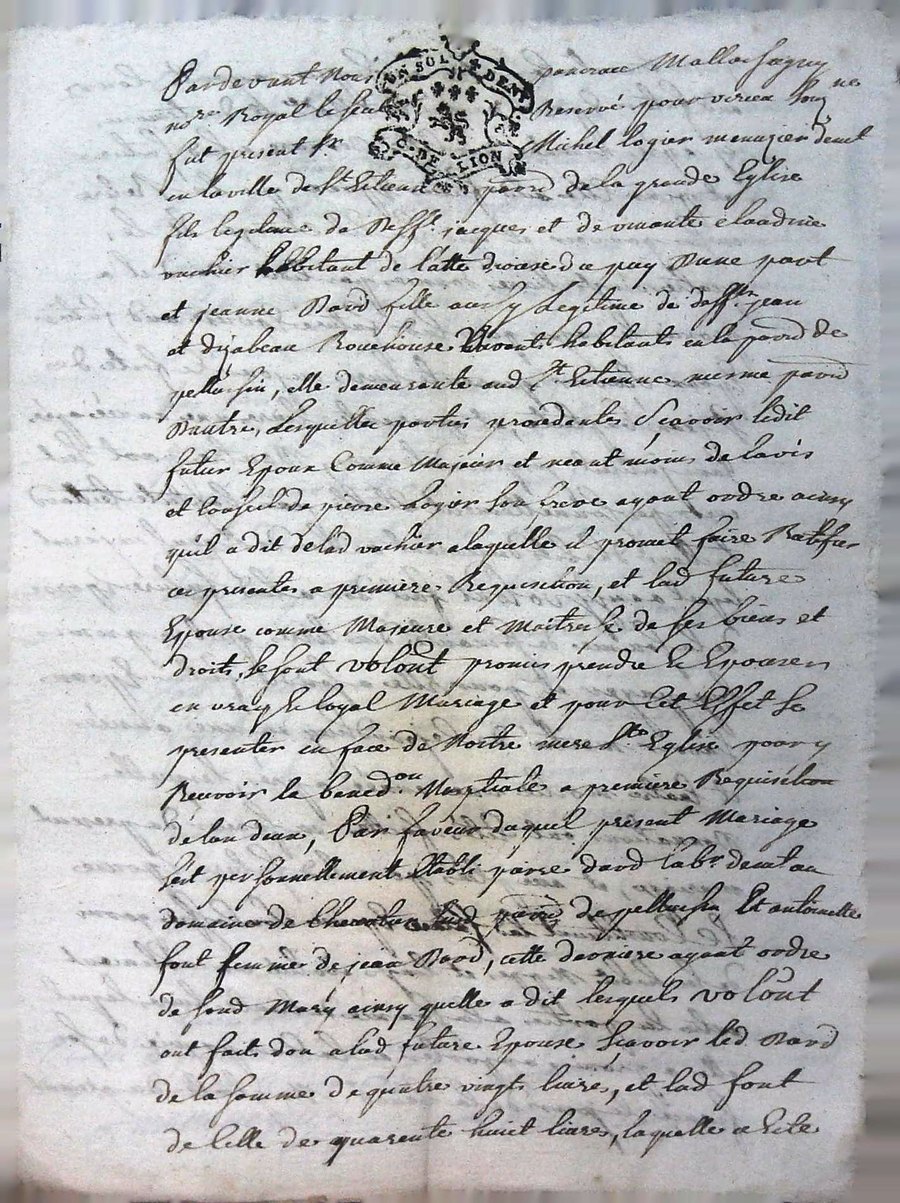 UN SOL DENI
G. DE LION
Pardevant Nous pancrace Mallassagny
nore Royal le seul Reservé pour virieu Soug nes
fut present Sr Michel Logier menuzier demt
en la ville de St Etienne parod de la grande Eglise
fils legitime de defft jacques et de vivante claudine
vachier habitant de latte diocese du puy Dune part
et jeanne Dard fille aussy Legitime de deffun jean
et dyzabeau Rouchouse vivants habitants en la parod de
pellussin, elle demeurante aud St Etienne mesme parod
Dautre, Lesquelles parties procedantes Scavoir ledit
futur Epoux Comme Majeur et neant moins de lavis
et Conseil de pierre Logier son frere ayant ordre ainsy
quil a dit de lad vachier a laquelle il promet faire Ratifier
ces presentes a premiere Requisition, et lad future
Epouse comme Majeure et Maitresse de ses biens et
droits, se sont volont promis prendre et Epouser
en vray et loyal Mariage et pour Cet Effet Se
presenter en face de Nostre mere Ste Eglise pour y
Recevoir la bened on Nuptiale a premiere Requisition
de lun deux, Par faveur duquel present Mariage
sest personnellement Etabli pierre dard labr demt au
domaine de parod de pellussin Et antoinette
font femme de jean Dard, cette derniere ayant ordre
de sond Mary ainsy quelle a dit lesquels volont
ont fait don a lad future Epouse Scavoir led Dard
de la somme de quatre vingt livres, et lad font
de Celle de quarente huit livres, laquelle a Este